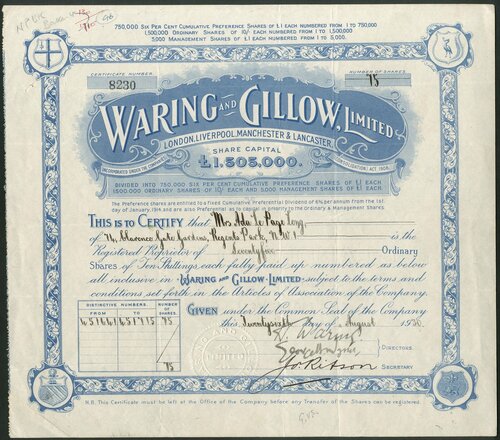 750,000 SIX PER CENT CUMULATIVE PREFERENCE SHARES OF £1 EACH NUMBERED FROM 1 TO 750,000
1,500,000 ORDINARY SHARES OF 10/- EACH NUMBERED FROM 1 TO 1,500,000
5,000 MANAGEMENT SHARES OF £1 EACH NUMBERED FROM 1 TO 5,000.
CERTIFICATE NUMBER
8230
NUMBER OF SHARES
75
WARING AND GILLOW, LIMITED
LONDON, LIVERPOOL, MANCHESTER & LANCASTER.
SHARE CAPITAL
£1,505,000.
INCORPORATED UNDER THE COMPANIES (CONSOLIDATION) ACT, 1908.
DIVIDED INTO 750,000 SIX PER CENT CUMULATIVE PREFERENCE SHARES OF £1 EACH
1,500,000 ORDINARY SHARES OF 10/- EACH AND 5,000 MANAGEMENT SHARES OF £1 EACH.
The Preference shares are entitled to a fixed Cumulative Preferential Dividend of 6% per annum from the 1st
day of January, 1914, and are also Preferential as to capital in priority to the Ordinary & Management Shares.
THIS IS TO CERTIFY that Mrs Ada Le Page Long,
of 74, Clarence Gate Gardens, Regents Park, N.W.1 is the
Registered Proprietor of Seventyfive Ordinary
Shares of Ten Shillings each fully paid up numbered as below
all inclusive in WARING AND GILLOW LIMITED subject to the terms and
conditions set forth in the Articles of Association of the Company.
DISTINCTIVE NUMBERS. NO. OF SHARES.
FROM TO
651661 651715 75
75
GIVEN under the Common Seal of the Company
this Twentysixth day of August 1920.
DIRECTORS.
SECRETARY
N.B. This Certificate must be left at the Office of the Company before any Transfer of the Shares can be registered.